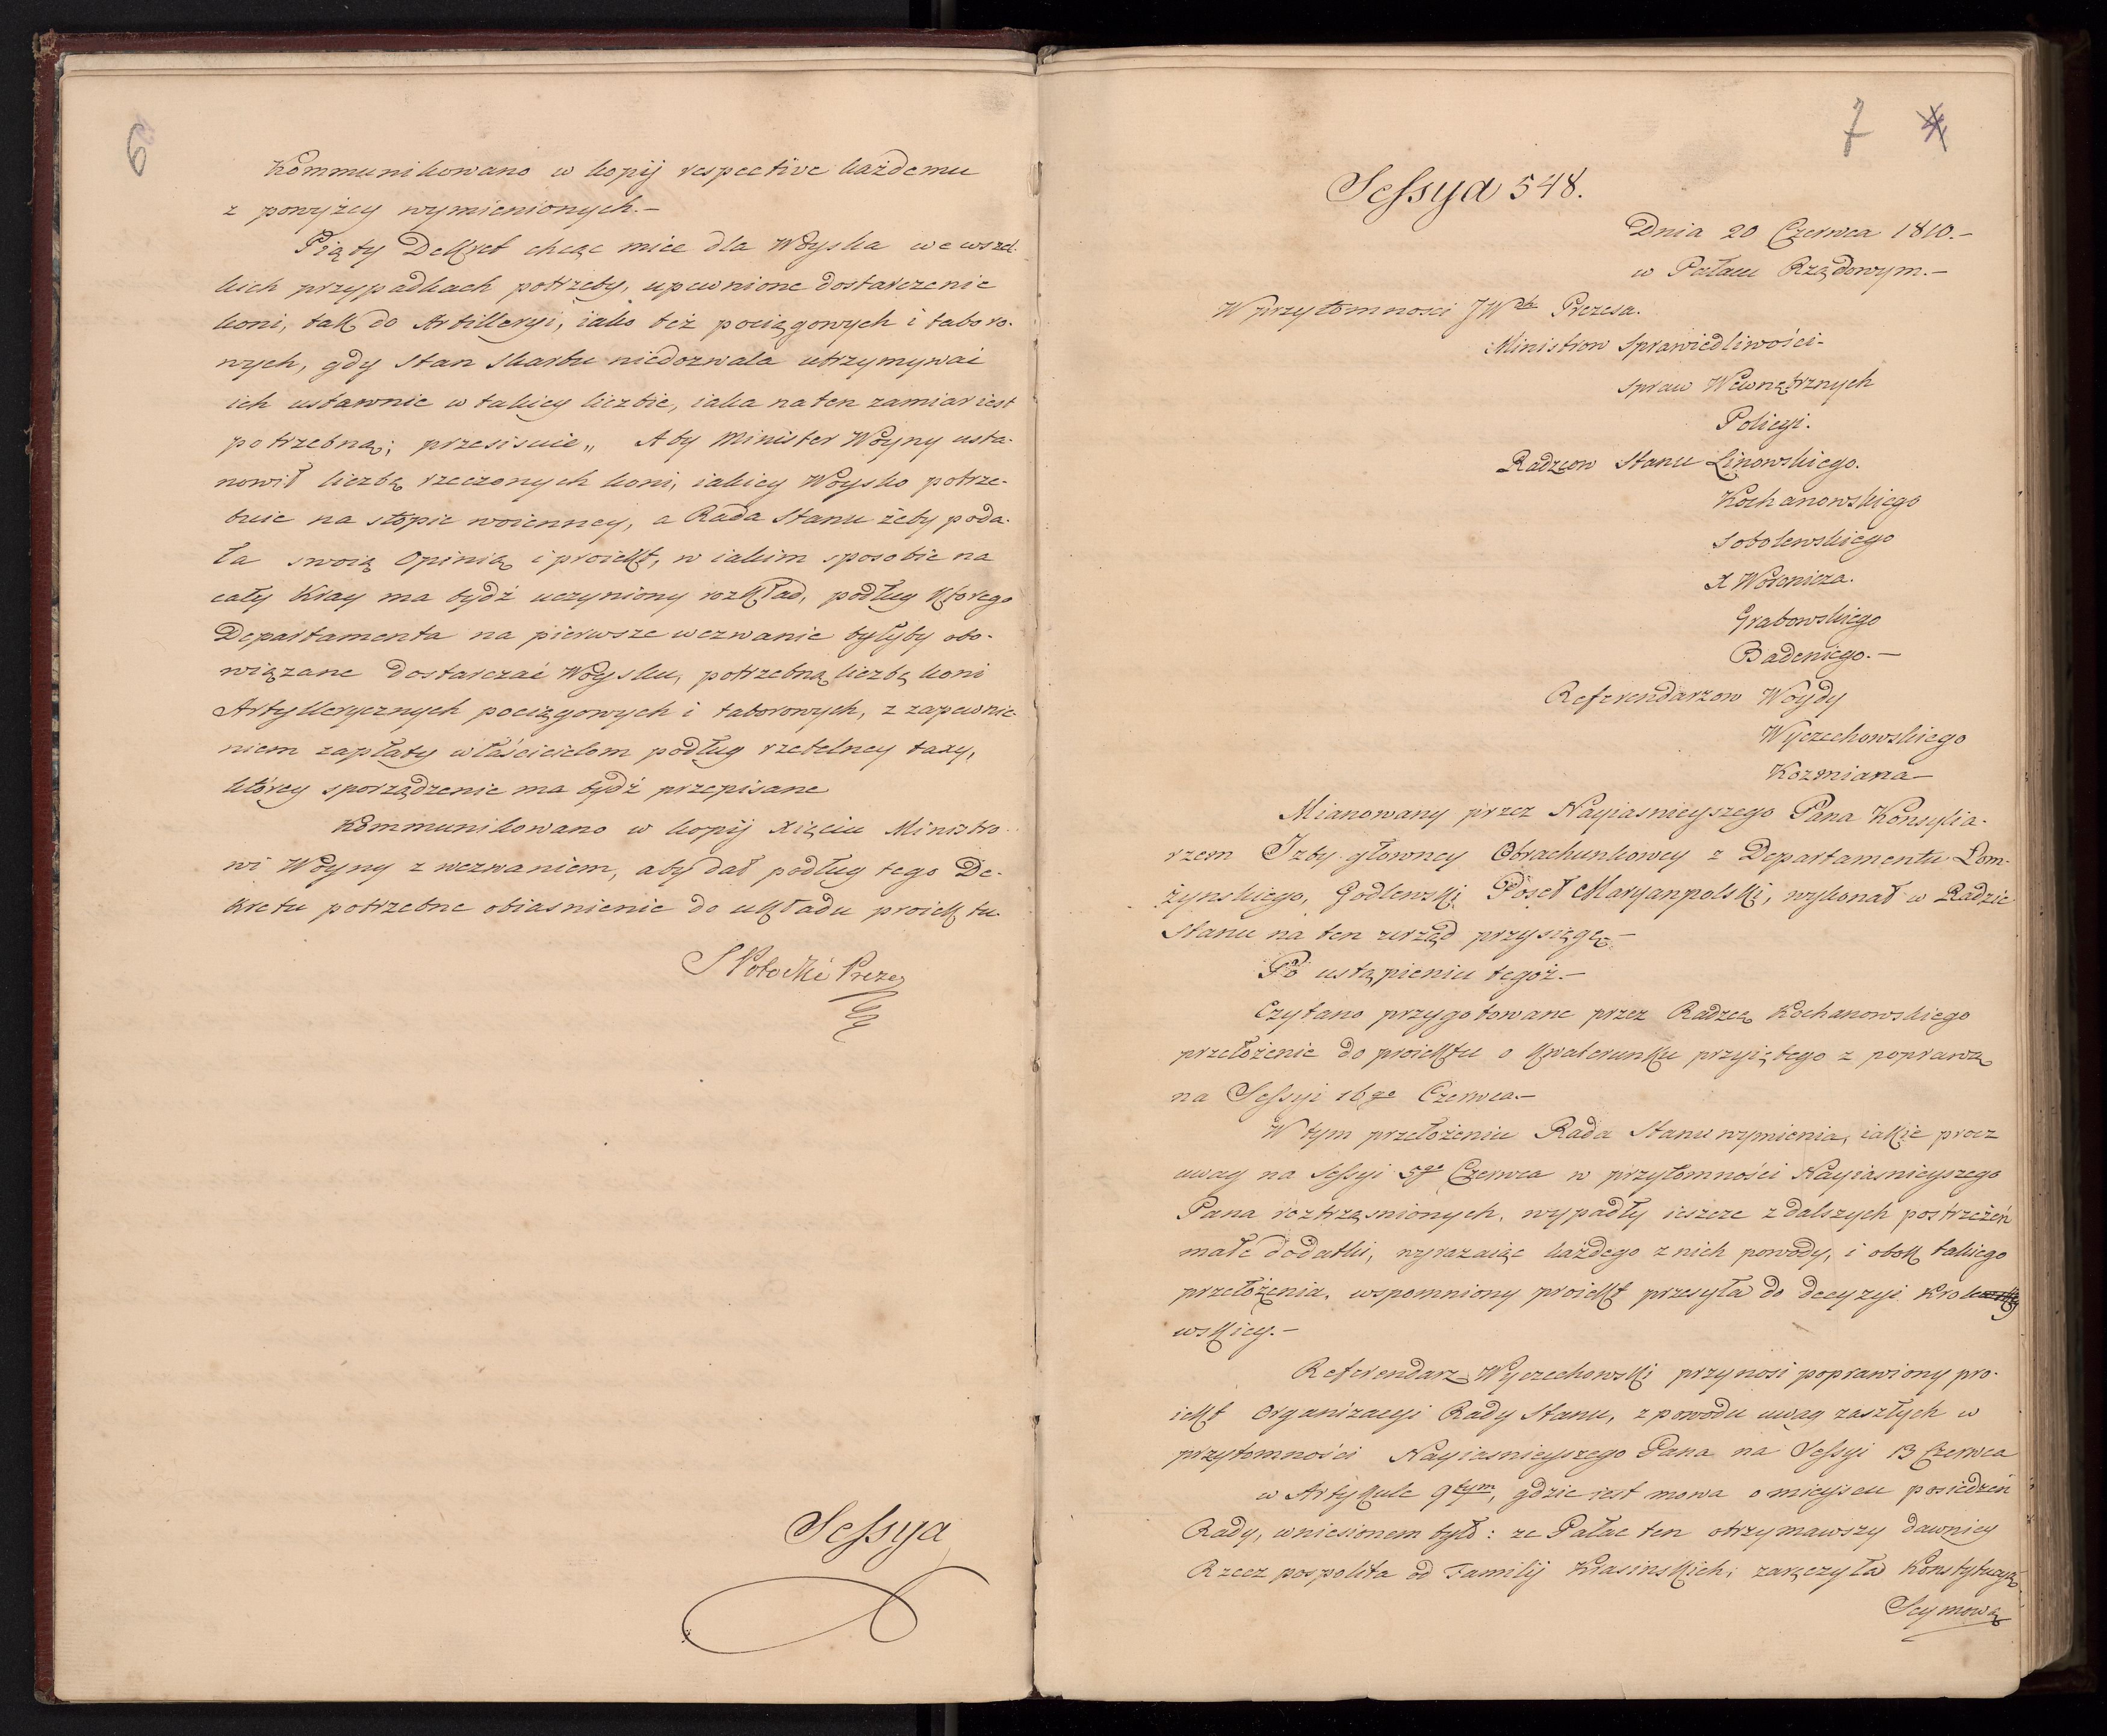 6
Kommunikowano w kopij respective każdemu
z powyżey wymienionych.-
Piąty Dekret chcąc mieć dla Woyska we wszel-
kich przypadkach potrzeby, upewnione dostarczenie
koni, tak do Artilleryi, iako też pociągowych i taboro-
nych, gdy Stan Skarbu niedozwala utrzymywać
ich ustawnie w takiey liczbie, iaka na ten zamiar iest
potrzebną; przesiście „ Aby Minister Woyny usta-
nowił liczbę rzeczonych koni, iakiey Woysko potrze-
buie na stopie woienney, a Rada Stanu żeby poda-
ła swoią Opinią i proiekt, w iakim sposobie na
cały Kray ma bydź uczyniony rozkład, podług ktorego
Departamenta na pierwsze wezwanie byłyby obo-
wiązane dostarczać Woysku, potrzebną liczbę koni
Artyllerycznych pociągowych i taborowych, z zapewnie-
niem zapłaty właścicielom podług rzetelney taxy,
którey sporządzenie ma bydź przepisane
Kommunikowano w kopij Xięciu Ministro-
wi Woyny z wezwaniem, aby dał podług tego De-
kretu potrzebne obiasnienie do układu proiektu.
S Potocki Prezes
Sessya
7 4
Sessya 548.
Dnia 20 Czerwca 1810.-
w Pałacu Rządowym.-
W przytomnosci JWch Prezesa.
Ministrow Sprawiedliwości-
Spraw Wewnętrznych
Policyi.
Radzcow Stanu Linowskiego.
Kochanowskiego
Sobolewskiego
X Woronicza.
Grabowskiego
Badeniego.-
Referendarzow Woydy
Wyczechowskiego
Kozmiana-
Mianowany przez Nayiasnieyszego Pana Konsylia-
rzem Izby głowney Obrachunkowey z Departamentu Łom-
żynskiego, Godlewski Poseł Maryanpolski, wykonał w Radzie
Stanu na ten urząd przysięgę.-
Po ustąpieniu tegoż.-
Czytano przygotowane przez Radzcę Kochanowskiego
przełożenie do proiektu o kwaterunku przyiętego z poprawą
na Sessyi 16go Czerwca.-
W tym przełożeniu Rada Stanu wymienia, iakie procz
uwag na Sessyi 5go Czerwca w przytomności Nayiasnieyszego
Pana roztrząsnionych, wypadły ieszcze z dalszych postrzeżeń
małe dodatki, wyrazaiąc każdego z nich powody, i obok takiego
przełożenia, wspomniony proiekt przesyła do decyzyi Krole
wskiey.-
Referendarz Wyczechowski przynosi poprawiony pro-
iekt Organizacyi Rady Stanu, z powodu uwag zaszłych w
przytomności Nayiasnieyszego Pana na Sessyi 13 Czerwca
w Artykule 9tym, gdzie iest mowa o mieyscu posiedzeń
Rady, wniesionem było: ze Pałac ten otrzymawszy dawniey
Rzecz pospolita od Familij Krasinskich, zaręczyła Konstytucyą
Seymową